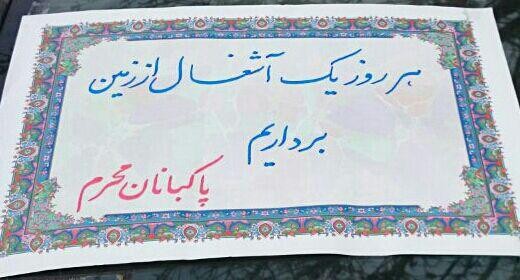 هر روز یک آشغال از زمین
برداریم
پاکبانان محرم